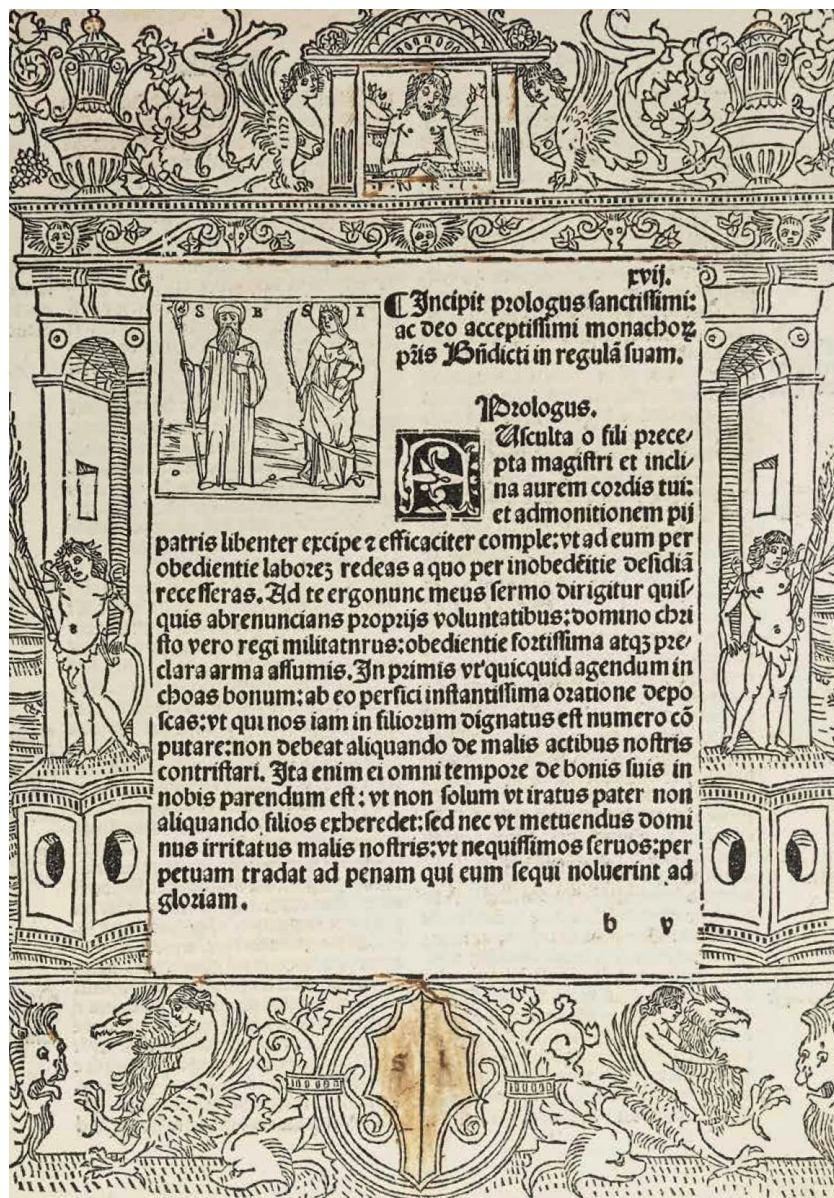 I·N·R·I·
xvij.
S B S I
¶ Incipit prologus sanctissimi:
ac deo acceptissimi monachoꝝ
pr̄is Bn̄dicti in regulā suam.
Prologus.
AUsculta o fili prece/
pta magistri et incli/
na aurem cordis tui:
et admonitionem pij
patris libenter excipe ⁊ efficaciter comple: vt ad eum per
obedientie laboreꝫ redeas a quo per inobedētie desidiā
recesseras. Ad te ergonunc meus sermo dirigitur quis/
quis abrenuncians proprijs voluntatibus: domino chri
sto vero regi militatnrus: obedientie fortissima atqꝫ pre/
clara arma assumis. In primis vt quicquid agendum in
choas bonum: ab eo persici instantissima oratione depo
scas: vt qui nos iam in filiorum dignatus est numero cō
putare: non debeat aliquando de malis actibus nostris
contristari. Ita enim ei omni tempore de bonis suis in
nobis parendum est: vt non solum vt iratus pater non
aliquando filios exheredet: sed nec vt metuendus domi
nus irritatus malis nostris: vt nequissimos seruos: per
petuam tradat ad penam qui eum sequi noluerint ad
gloriam.
b v
S I